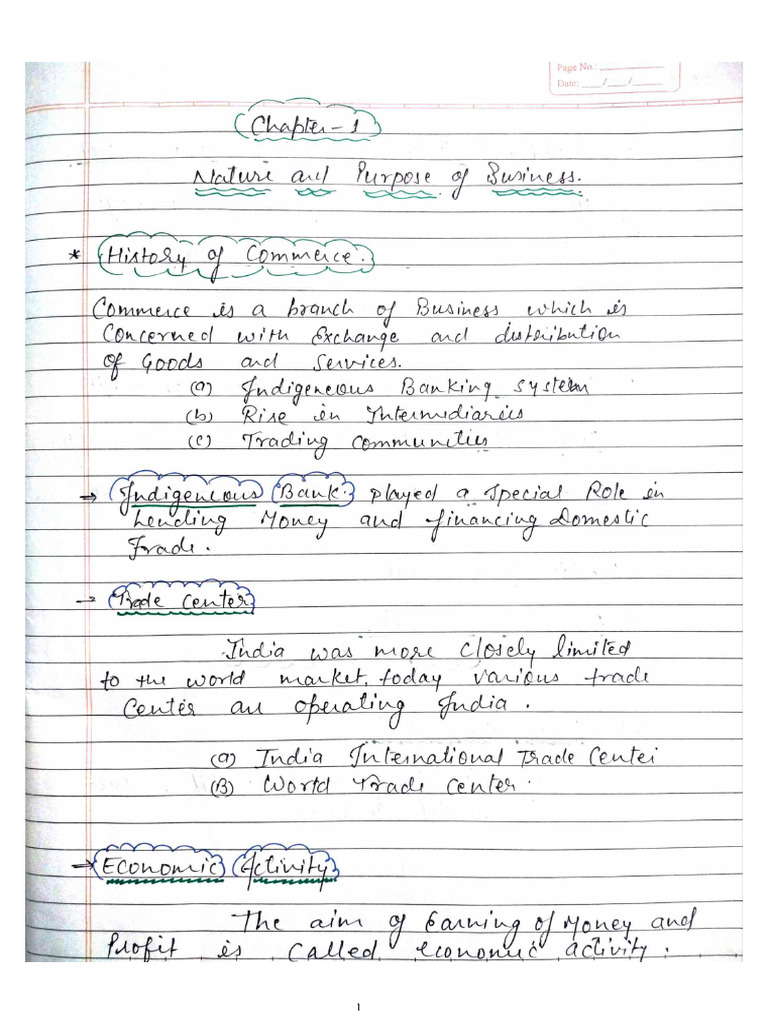 Page No.:
Date: __/__/__
Chapter-1
Nature and Purpose of Business.
* History of Commerce.
Commerce is a branch of Business which is
concerned with Exchange and distribution
of Goods and Services.
(a) Indigeneous Banking system
(b) Rise in Intermediaries
(c) Trading communities
→ Indigeneous Bank. played a special Role in
Lending Money and financing Domestic
Trade.
→ Trade Center
India was more closely limited
to the world market, today various trade
Center are operating India.
(a) India International Trade Center
(B) World Trade Center.
→ Economic Activity
The aim of Earning of Money and
Profit is called economic activity.
1